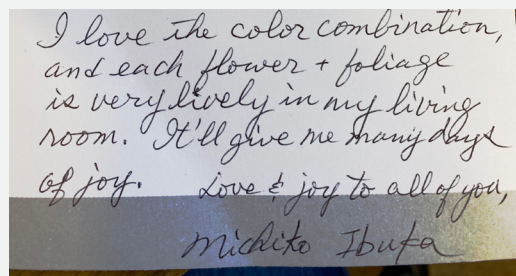 I love the color combination,
and each flower + foliage
is very lively in my living
room. It'll give me many days
of joy. Love & joy to all of you,
Michiko Ibuka